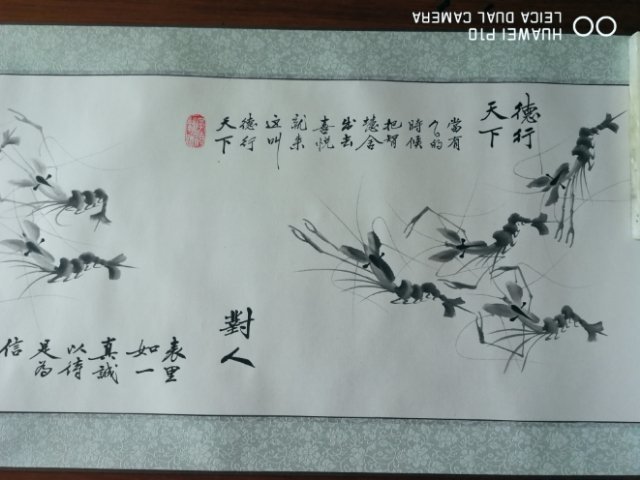 德行
天下
當有
的
時候
把智
慧舍
出去
喜悅
就來
这叫
德行
天下
對人
表里
如一
真誠
以待
足為
信
HUAWEI P10
LEICA DUAL CAMERA